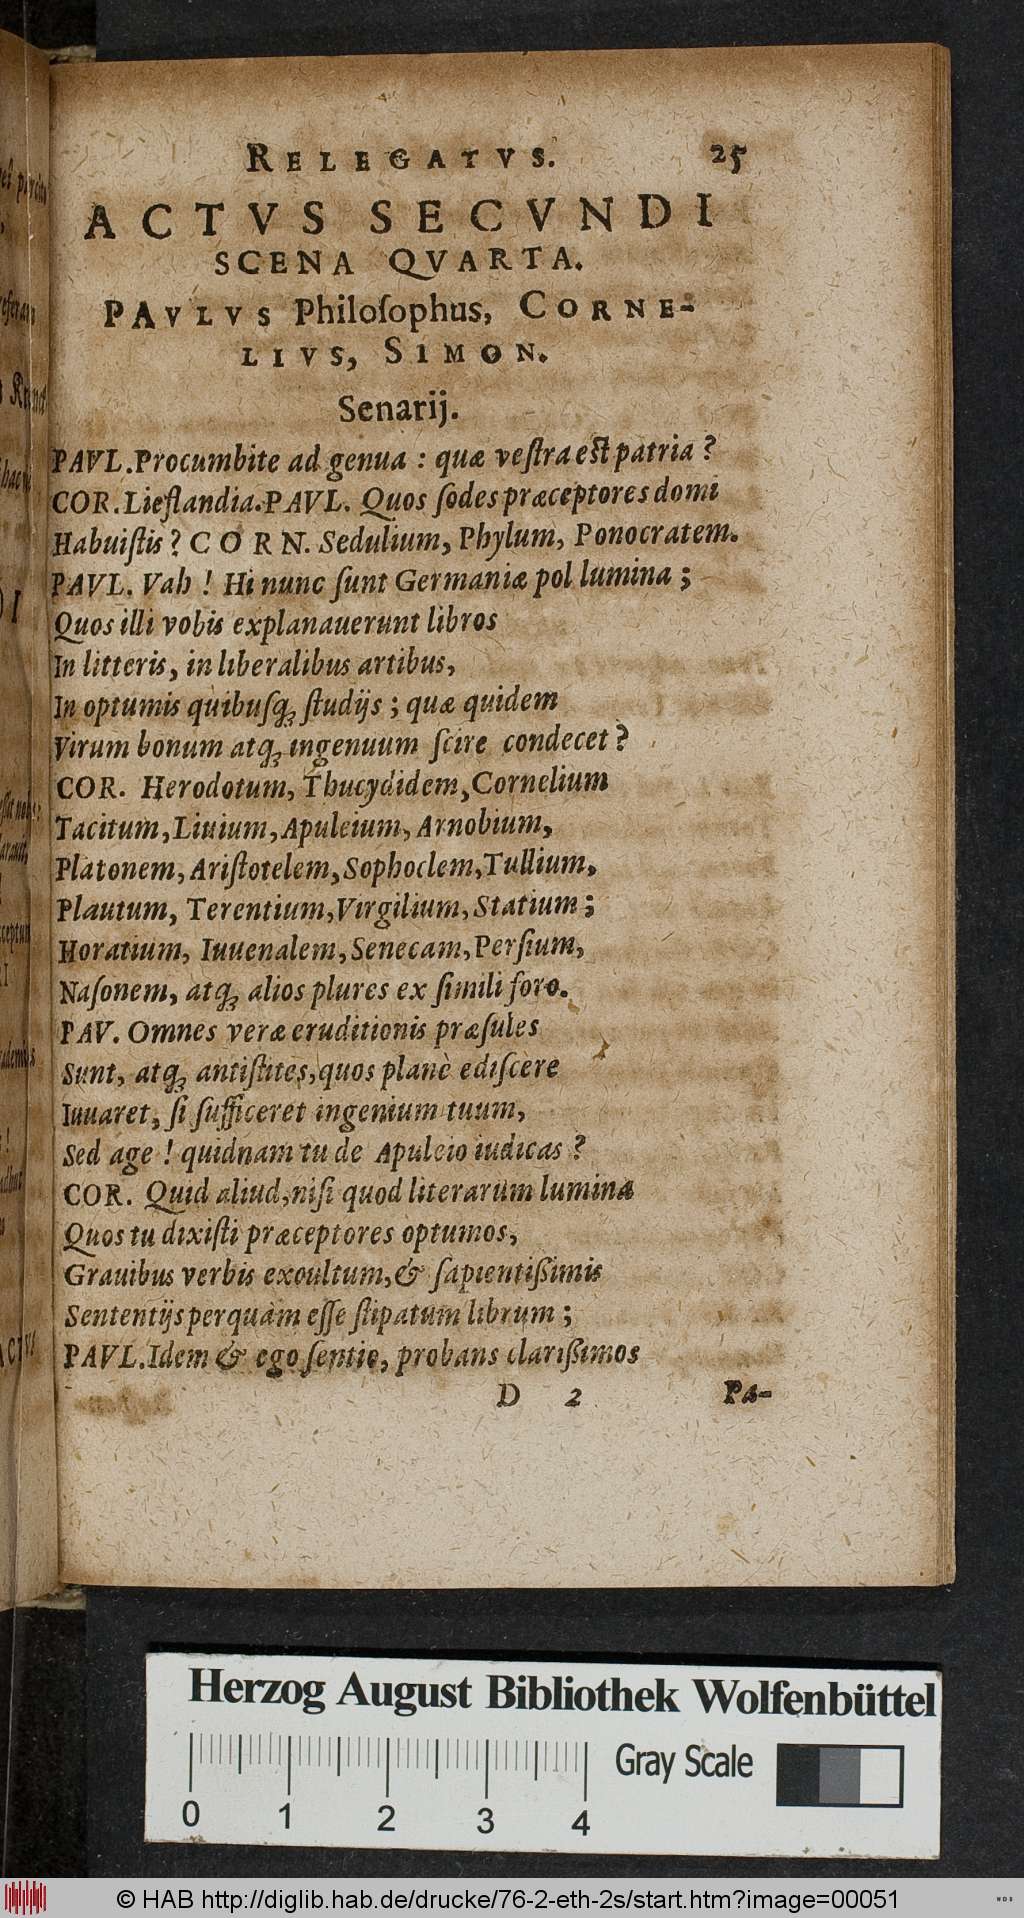 RELEGATVS. 25
ACTVS SECVNDI
SCENA QVARTA.
PAVLVS Philoſophus, CORNE-
LIVS, SIMON.
Senarij.
PAVL. Procumbite ad genua : quæ veſtra eſt patria ?
COR. Lieflandia. PAVL. Quos ſodes præceptores domi
Habuiſtis ? CORN. Sedulium, Phylum, Ponocratem.
PAVL. Vah ! Hi nunc ſunt Germaniæ pol lumina ;
Quos illi vobis explanauerunt libros
In litteris, in liberalibus artibus,
In optumis quibuſq́; ſtudijs ; quæ quidem
Virum bonum atq́; ingenuum ſcire condecet ?
COR. Herodotum, Thucydidem, Cornelium
Tacitum, Liuium, Apuleium, Arnobium,
Platonem, Ariſtotelem, Sophoclem, Tullium,
Plautum, Terentium, Virgilium, Statium ;
Horatium, Iuuenalem, Senecam, Perſium,
Naſonem, atq́; alios plures ex ſimili foro.
PAV. Omnes veræ eruditionis præſules
Sunt, atq́; antiſtites, quos planè ediſcere
Iuuaret, ſi ſufficeret ingenium tuum,
Sed age ! quidnam tu de Apuleio iudicas ?
COR. Quid aliud, niſi quod literarum lumina
Quos tu dixiſti præceptores optumos,
Grauibus verbis exoultum, & ſapientißimis
Sententijs perquàm eſſe ſtipatum librum ;
PAVL. Idem & ego ſentio, probans clarißimos
D 2 Pa-
Herzog August Bibliothek Wolfenbüttel
Gray Scale
0 1 2 3 4
© HAB http://diglib.hab.de/drucke/76-2-eth-2s/start.htm?image=00051